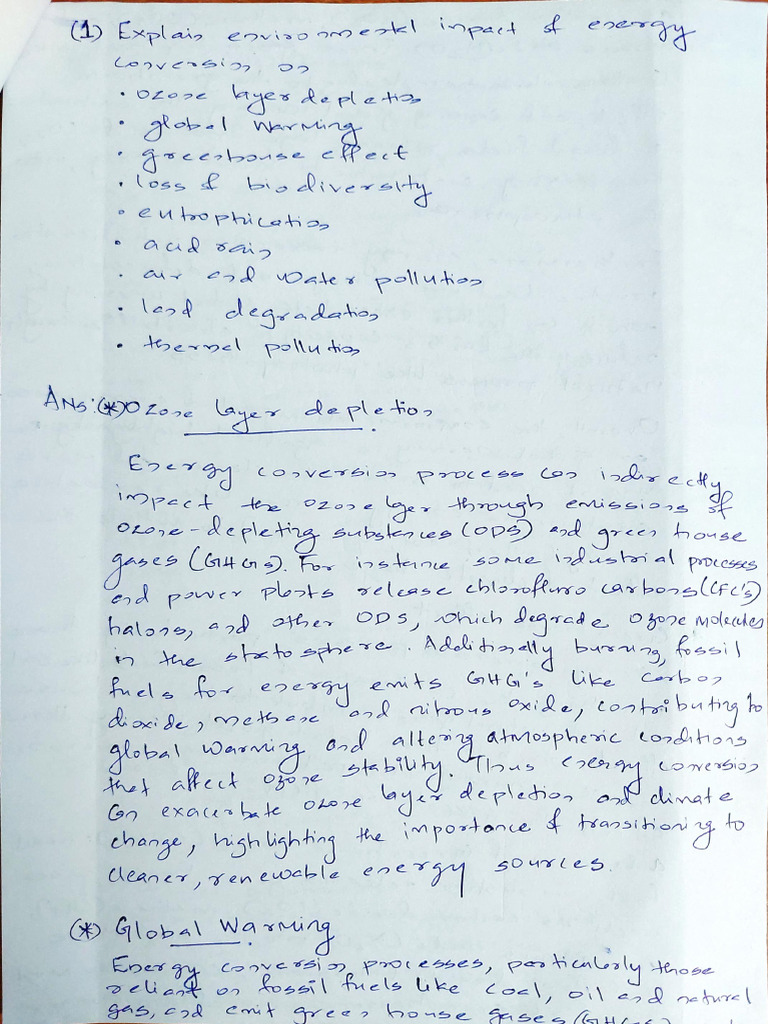 (1) Explain environmental impact of energy
conversion on
• ozone layer depletion
• global warming
• greenhouse effect
• loss of biodiversity
• eutrophication
• acid rain
• air and water pollution
• land degradation
• thermal pollution
Ans:(*) Ozone layer depletion.
Energy conversion process can indirectly
impact the ozone layer through emissions of
ozone-depleting substances (ODS) and green house
gases (GHGs). For instance some industrial processes
and power plants release chlorofluro carbons (CFC's)
halons, and other ODS, which degrade ozone molecules
in the stratosphere. Additionally burning fossil
fuels for energy emits GHG's like carbon
dioxide, methane and nitrous oxide, contributing to
global warming and altering atmospheric conditions
that affect ozone stability. Thus energy conversion
can exacerbate ozone layer depletion and climate
change, highlighting the importance of transitioning to
cleaner, renewable energy sources.
(*) Global Warming
Energy conversion processes, particularly those
reliant on fossil fuels like coal, oil and natural
gas, and emit green house gases (GHGs)